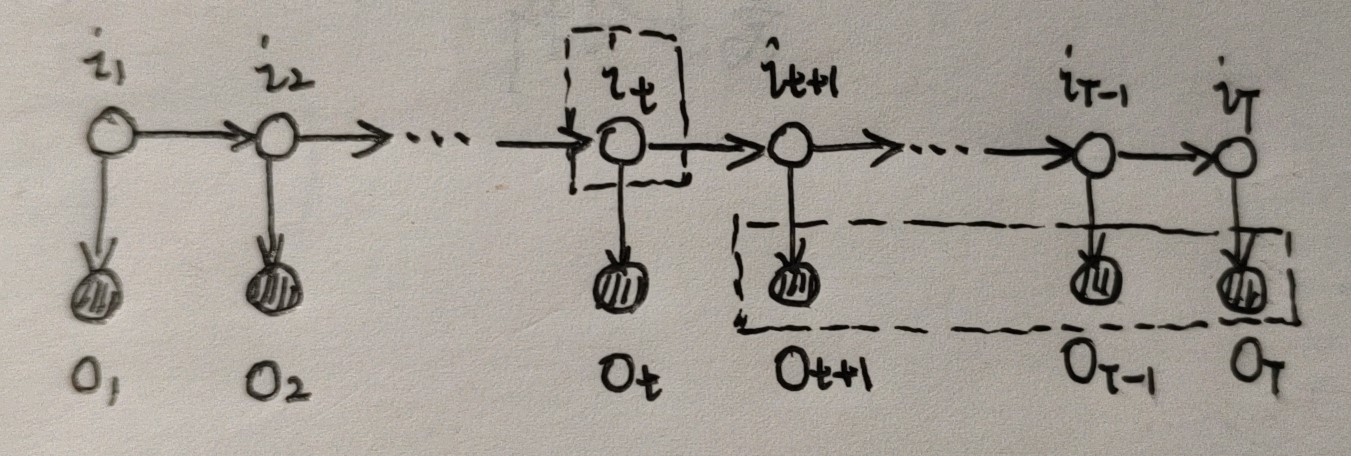 i₁ i₂ iₜ iₜ₊₁ i_T₋₁ i_T
... ...
O₁ O₂ Oₜ Oₜ₊₁ O_T₋₁ O_T